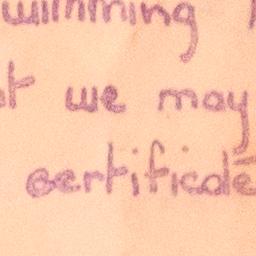 swimming
t we may
certificate